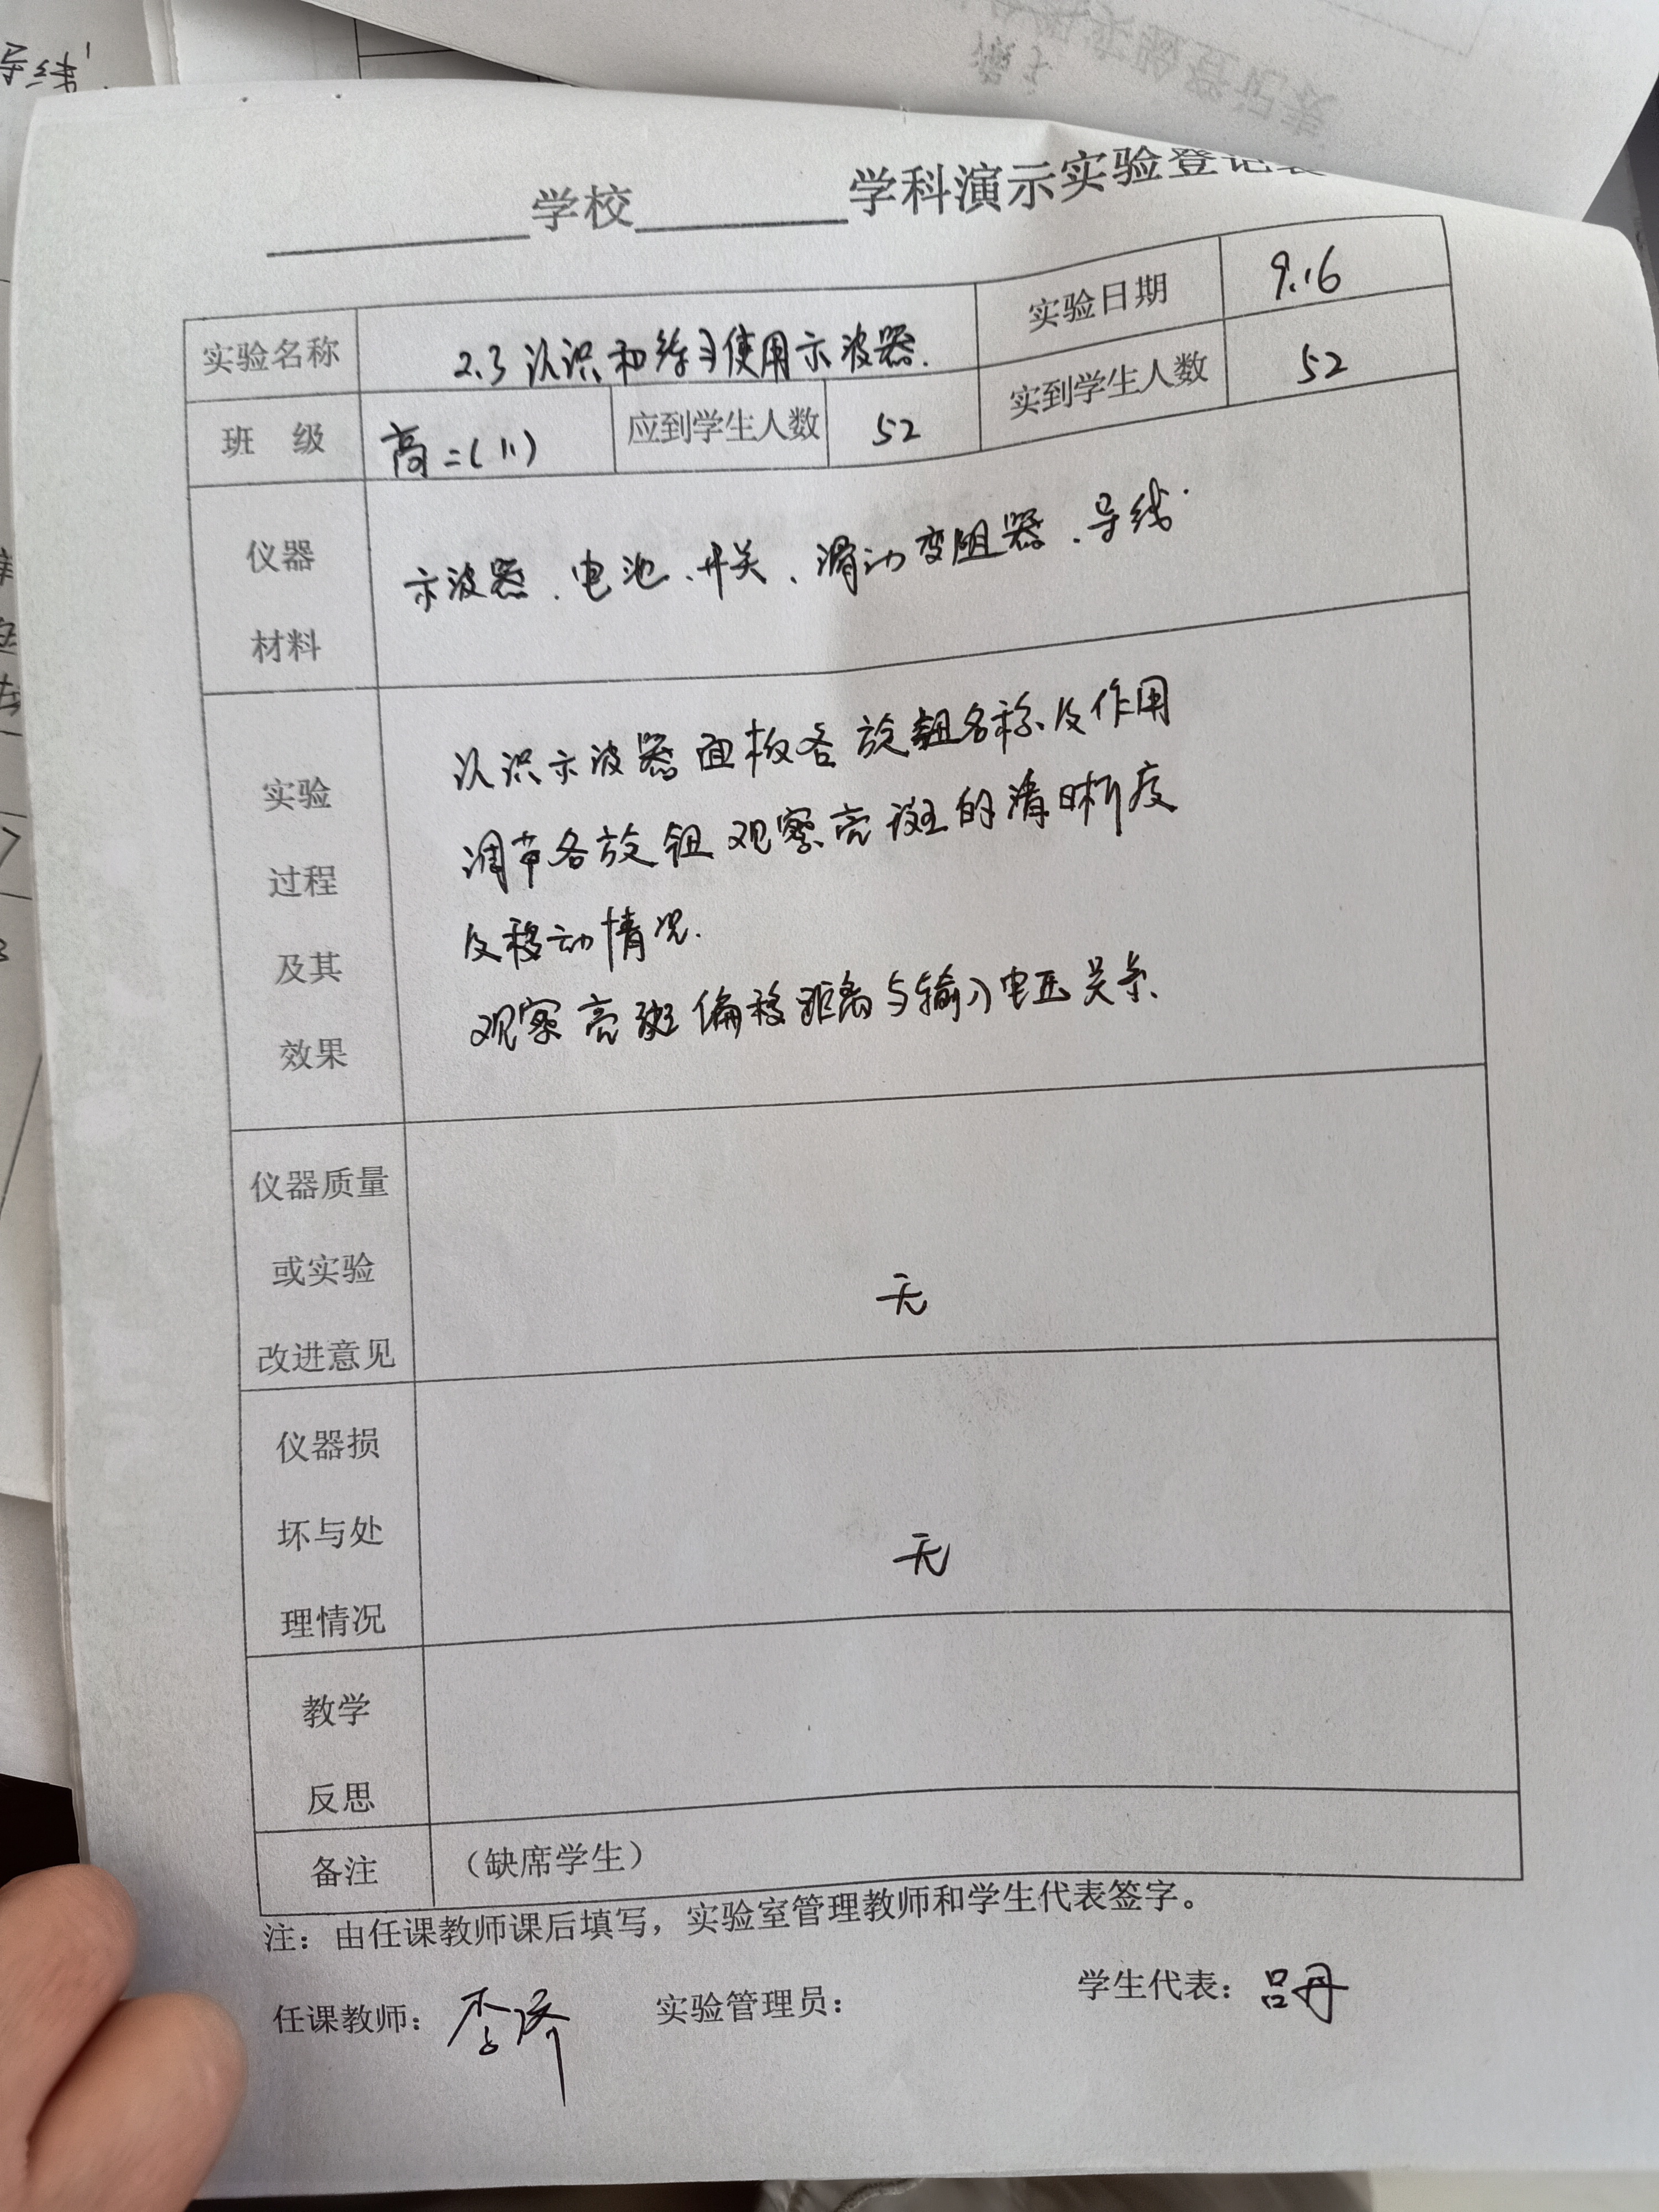 导线
学校 学科演示实验登记表
实验名称 2.3 认识和练习使用示波器. 实验日期 9.16
班 级 高二(11) 应到学生人数 52 实到学生人数 52
仪器
材料
示波器、电池、开关、滑动变阻器、导线.
实验
过程
及其
效果
认识示波器面板各旋钮名称及作用
调节各旋钮观察亮斑的清晰度
及移动情况.
观察亮斑偏移距离与输入电压关系.
仪器质量
或实验
改进意见
无
仪器损
坏与处
理情况
无
教学
反思
备注 （缺席学生）
注：由任课教师课后填写，实验室管理教师和学生代表签字。
任课教师： 实验管理员： 学生代表：吕丹